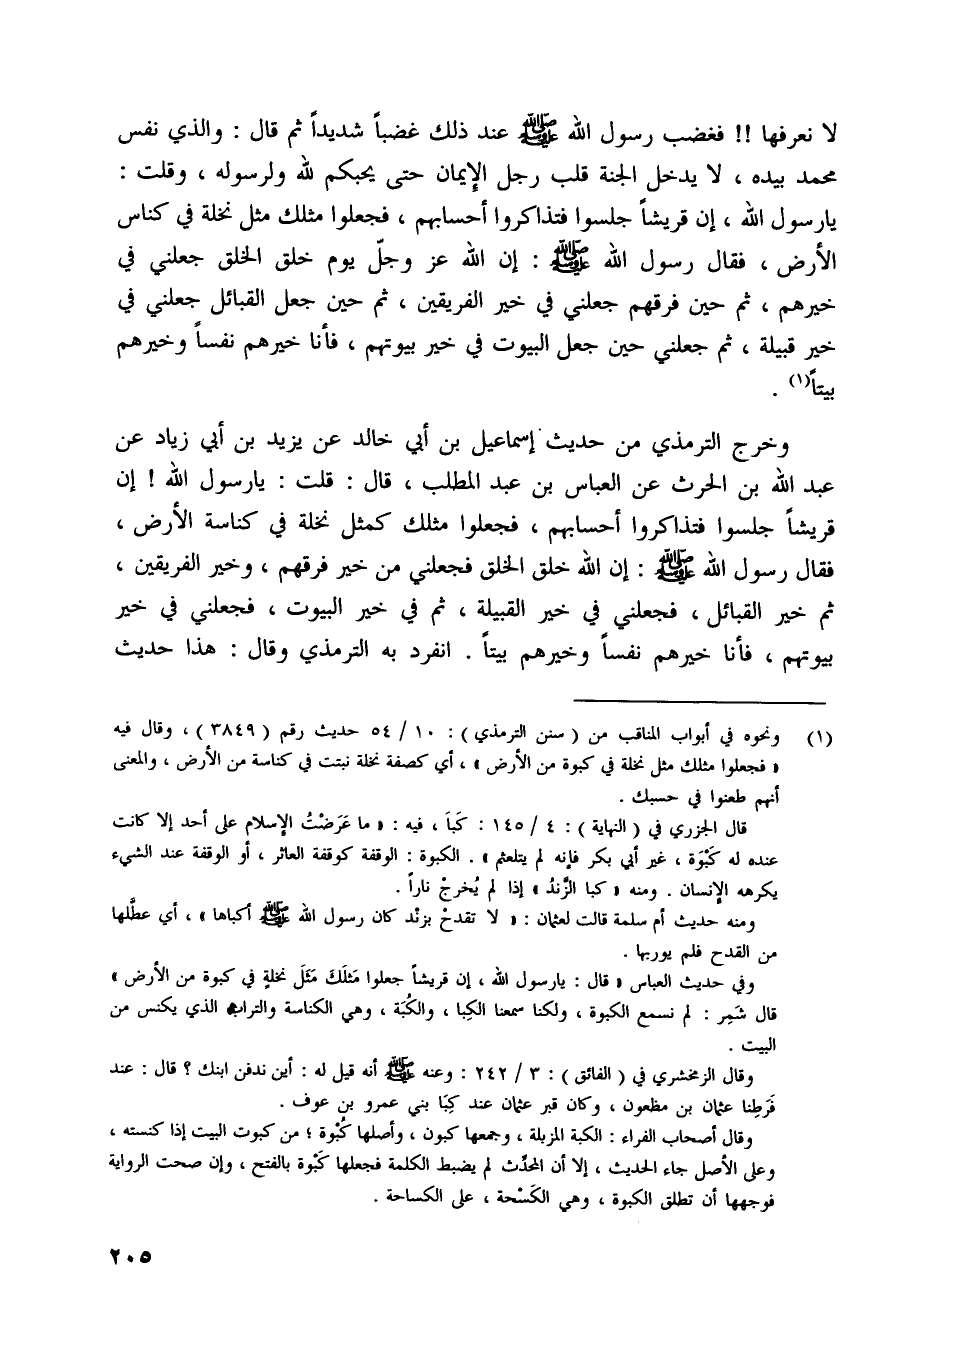 لا نعرفها !! فغضب رسول الله ﷺ عند ذلك غضباً شديداً ثم قال : والذي نفس
محمد بيده ، لا يدخل الجنة قلب رجل الإيمان حتى يحبكم لله ولرسوله ، وقلت :
يارسول الله ، إن قريشاً جلسوا فتذاكروا أحسابهم ، فجعلوا مثلك مثل نخلة في كناس
الأرض ، فقال رسول الله ﷺ : إن الله عز وجلّ يوم خلق الخلق جعلني في
خيرهم ، ثم حين فرقهم جعلني في خير الفريقين ، ثم حين جعل القبائل جعلني في
خير قبيلة ، ثم جعلني حين جعل البيوت في خير بيوتهم ، فأنا خيرهم نفساً وخيرهم
بيتاً(١) .
وخرج الترمذي من حديث إسماعيل بن أبي خالد عن يزيد بن أبي زياد عن
عبد الله بن الحرث عن العباس بن عبد المطلب ، قال : قلت : يارسول الله ! إن
قريشاً جلسوا فتذاكروا أحسابهم ، فجعلوا مثلك كمثل نخلة في كناسة الأرض ،
فقال رسول الله ﷺ : إن الله خلق الخلق فجعلني من خير فرقهم ، وخير الفريقين ،
ثم خير القبائل ، فجعلني في خير القبيلة ، ثم في خير البيوت ، فجعلني في خير
بيوتهم ، فأنا خيرهم نفساً وخيرهم بيتاً . انفرد به الترمذي وقال : هذا حديث
(١) ونحوه في أبواب المناقب من ( سنن الترمذي ) : ١٠ / ٥٤ حديث رقم ( ٣٨٤٩ ) ، وقال فيه
« فجعلوا مثلك مثل نخلة في كبوة من الأرض » ، أي كصفة نخلة نبتت في كناسة من الأرض ، والمعنى
أنهم طعنوا في حسبك .
قال الجزري في ( النهاية ) : ٤ / ١٤٥ : كَبَا ، فيه : « ما عَرَضْتُ الإسلام على أحد إلا كانت
عنده له كَبْوَة ، غير أبي بكر فإنه لم يتلعثم » . الكبوة : الوقفة كوقفة العاثر ، أو الوقفة عند الشيء
يكرهه الإنسان . ومنه « كبا الزَّندُ » إذا لم يُخرجْ ناراً .
ومنه حديث أم سلمة قالت لعثمان : « لا تقدحْ بزنْد كان رسول الله ﷺ أكباها » ، أي عطَّلها
من القدح فلم يوربها .
وفي حديث العباس « قال : يارسول الله ، إن قريشاً جعلوا مَثلَكَ مَثَلَ نخلةٍ في كبوة من الأرض »
قال شَمِر : لم نسمع الكبوة ، ولكنا سمعنا الكِبا ، والكُبَة ، وهي الكناسة والتراب الذي يكنس من
البيت .
وقال الزمخشري في ( الفائق ) : ٣ / ٢٤٢ : وعنه ﷺ أنه قيل له : أين ندفن ابنك ؟ قال : عند
فَرَطِنا عثمان بن مظعون ، وكان قبر عثمان عند كِبَا بني عمرو بن عوف .
وقال أصحاب الفراء : الكبة المزبلة ، وجمعها كبون ، وأصلها كُبْوة ؛ من كبوت البيت إذا كنسته ،
وعلى الأصل جاء الحديث ، إلا أن المحدِّث لم يضبط الكلمة فجعلها كَبْوة بالفتح ، وإن صحت الرواية
فوجهها أن تطلق الكبوة ، وهي الكَسْحة ، على الكساحة .
٢٠٥